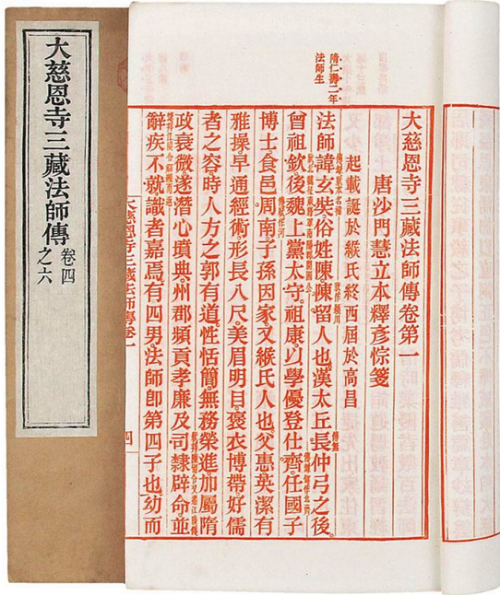 大慈恩寺三藏法師傳
卷四
之六
隋仁壽二年
法師生
大慈恩寺三藏法師傳卷第一
唐沙門慧立本釋彥悰箋
起載誕於緱氏終西屆於高昌
法師諱玄奘俗姓陳陳留人也漢太丘長仲弓之後
曾祖欽後魏上黨太守祖康以學優登仕齊任國子
博士食邑周南子孫因家又緱氏人也父惠英潔有
雅操早通經術形長八尺美眉明目褒衣博帶好儒
者之容時人方之郭有道性恬簡無務榮進加屬隋
政衰微遂潛心墳典州郡頻貢孝廉及司隸辟命並
辭疾不就識者嘉焉有四男法師即第四子也幼而
大慈恩寺三藏法師傳卷一
四